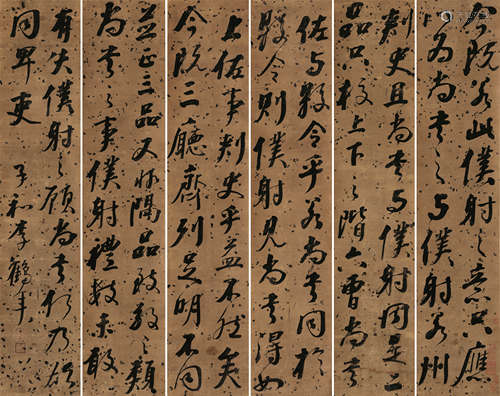 今既若此僕射之意只應
以為尚書之与僕射若州
刺史且尚書与僕射同是二
品只校上下之階六曹尚書
佐与縣令乎若尚書同於
縣令則僕射見尚書得如
上佐事刺史乎益不然矣
今既三廳齊列足明不同
並正三品又非隔品致敬之類
尚書之事僕射禮數未敢
有失僕射之顧尚書何乃欲
同卑吏 子和李鶴年